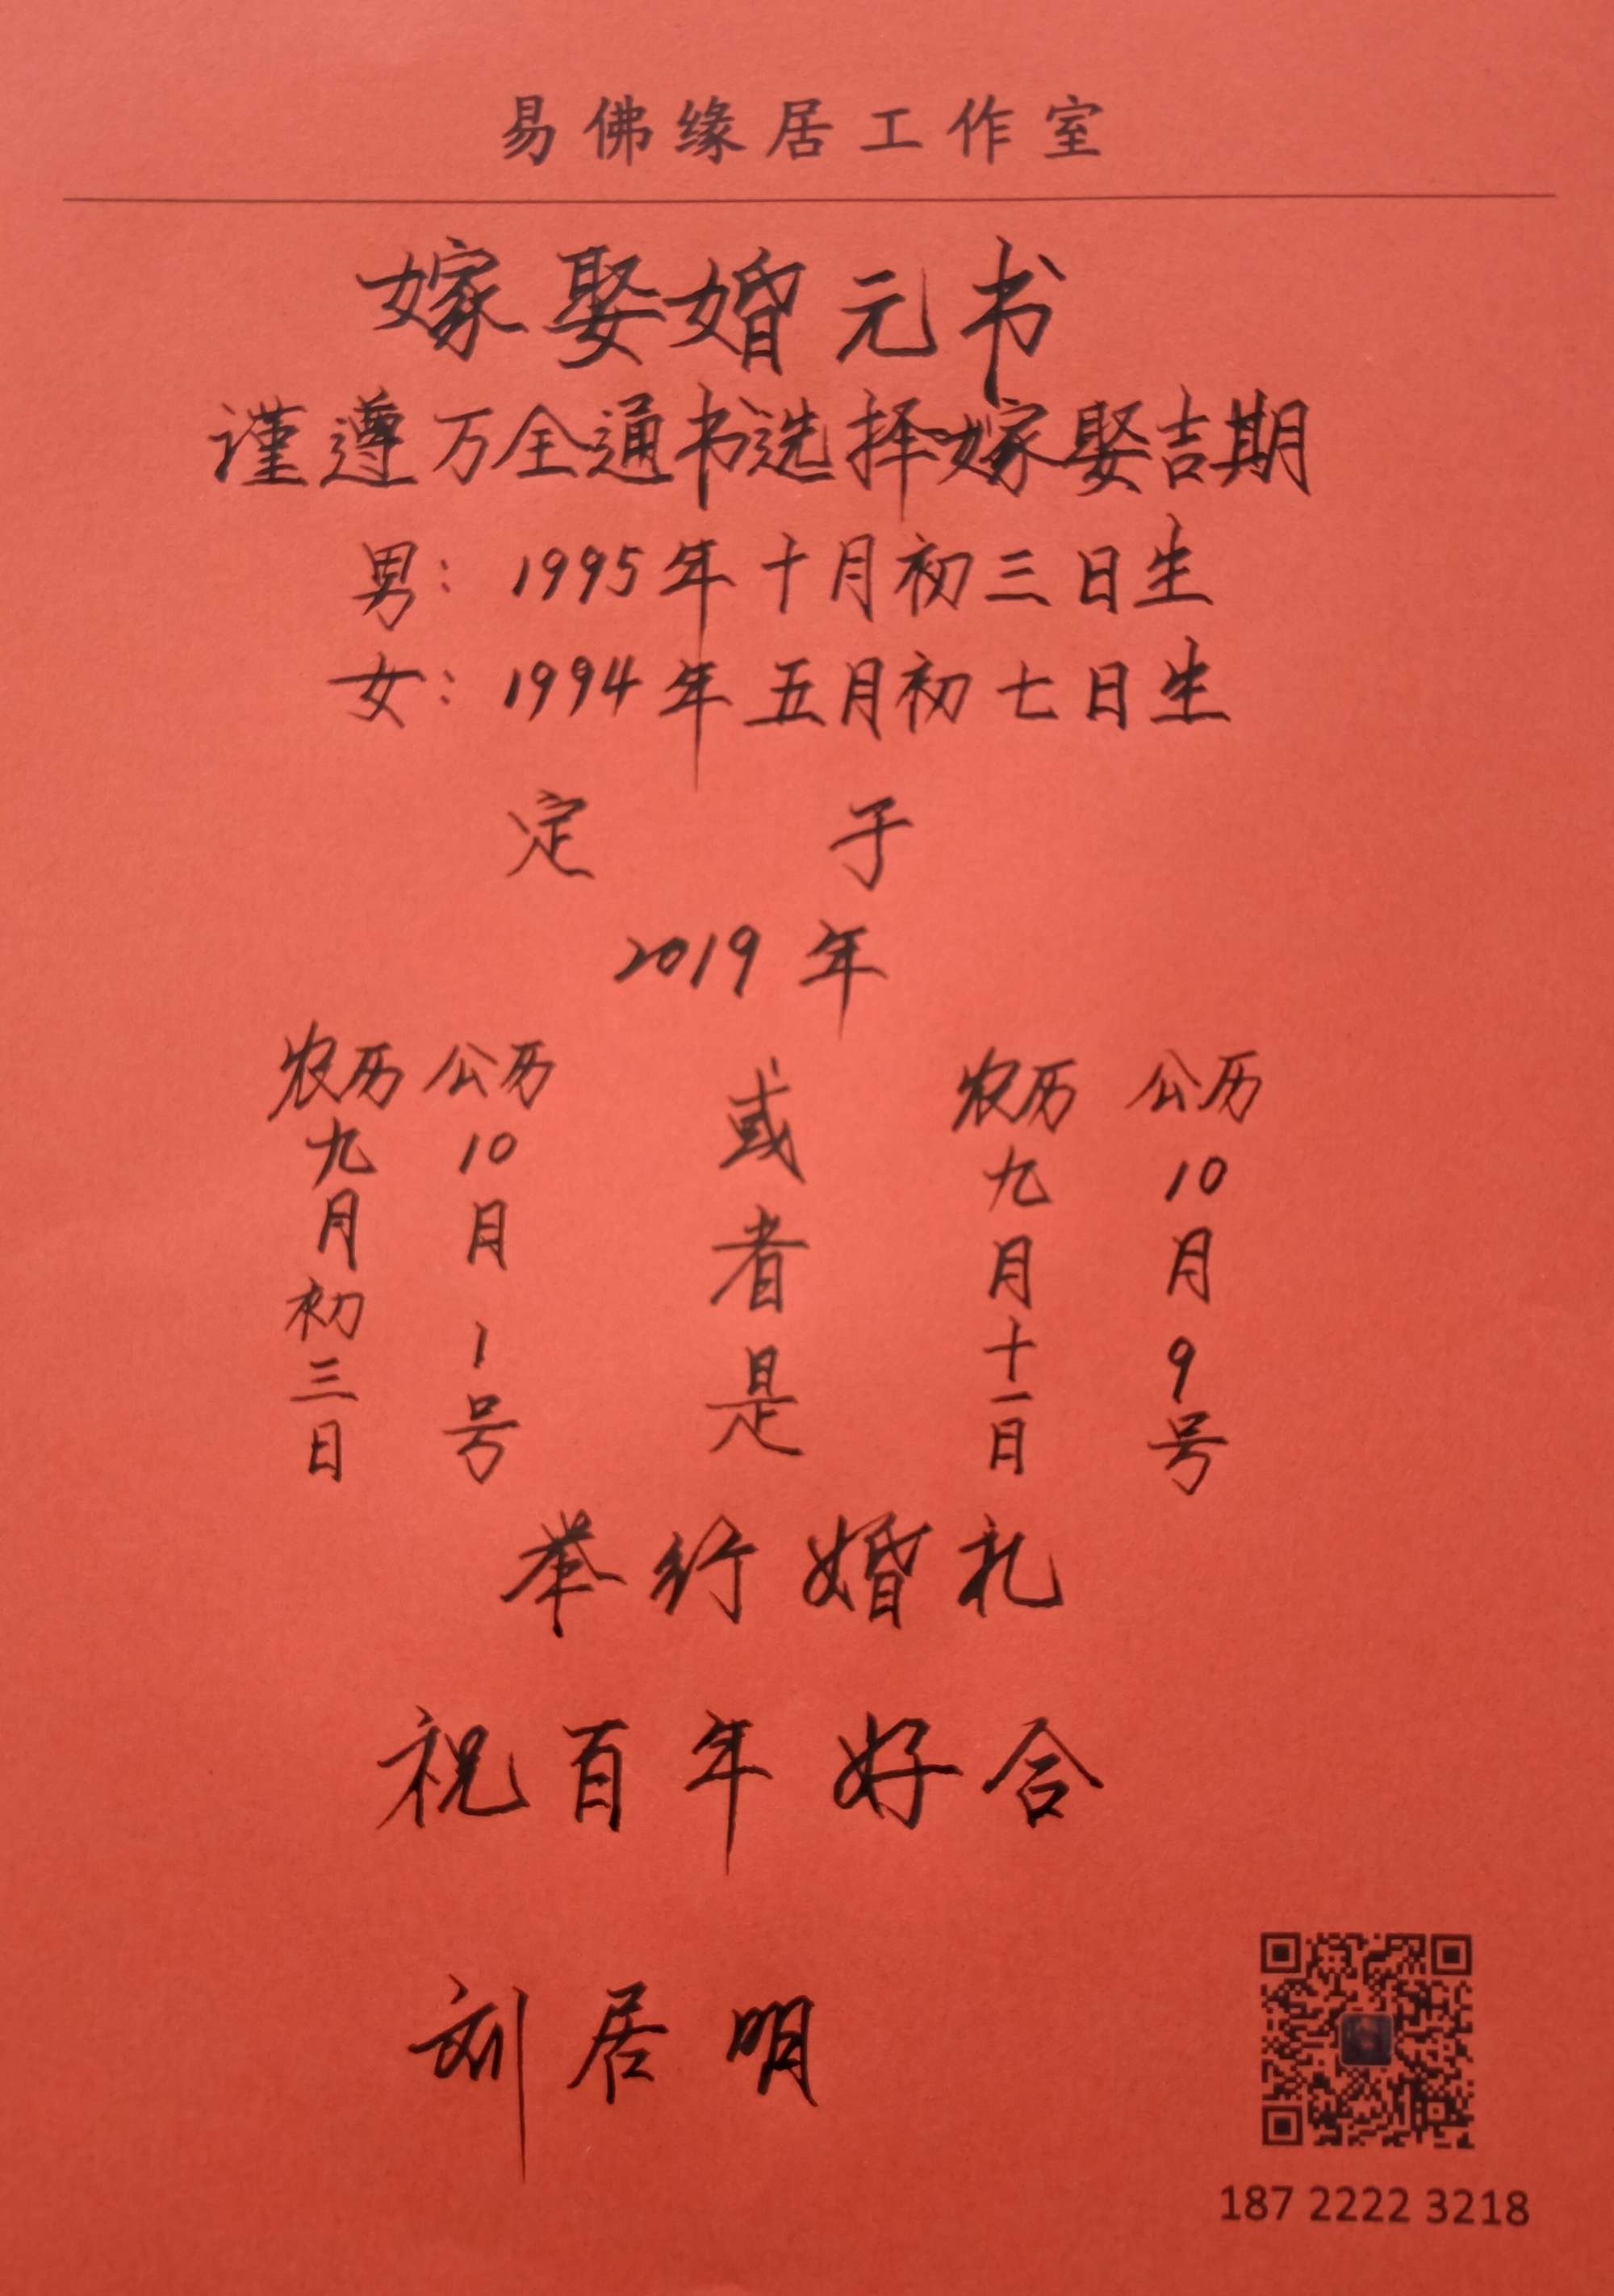 易佛缘居工作室
嫁娶婚元书
谨遵万全通书选择嫁娶吉期
男：1995年十月初三日生
女：1994年五月初七日生
定 于
2019年
农历九月初三日
公历10月1号
或者是
农历九月十一日
公历10月9号
举行婚礼
祝百年好合
刘居明
187 2222 3218